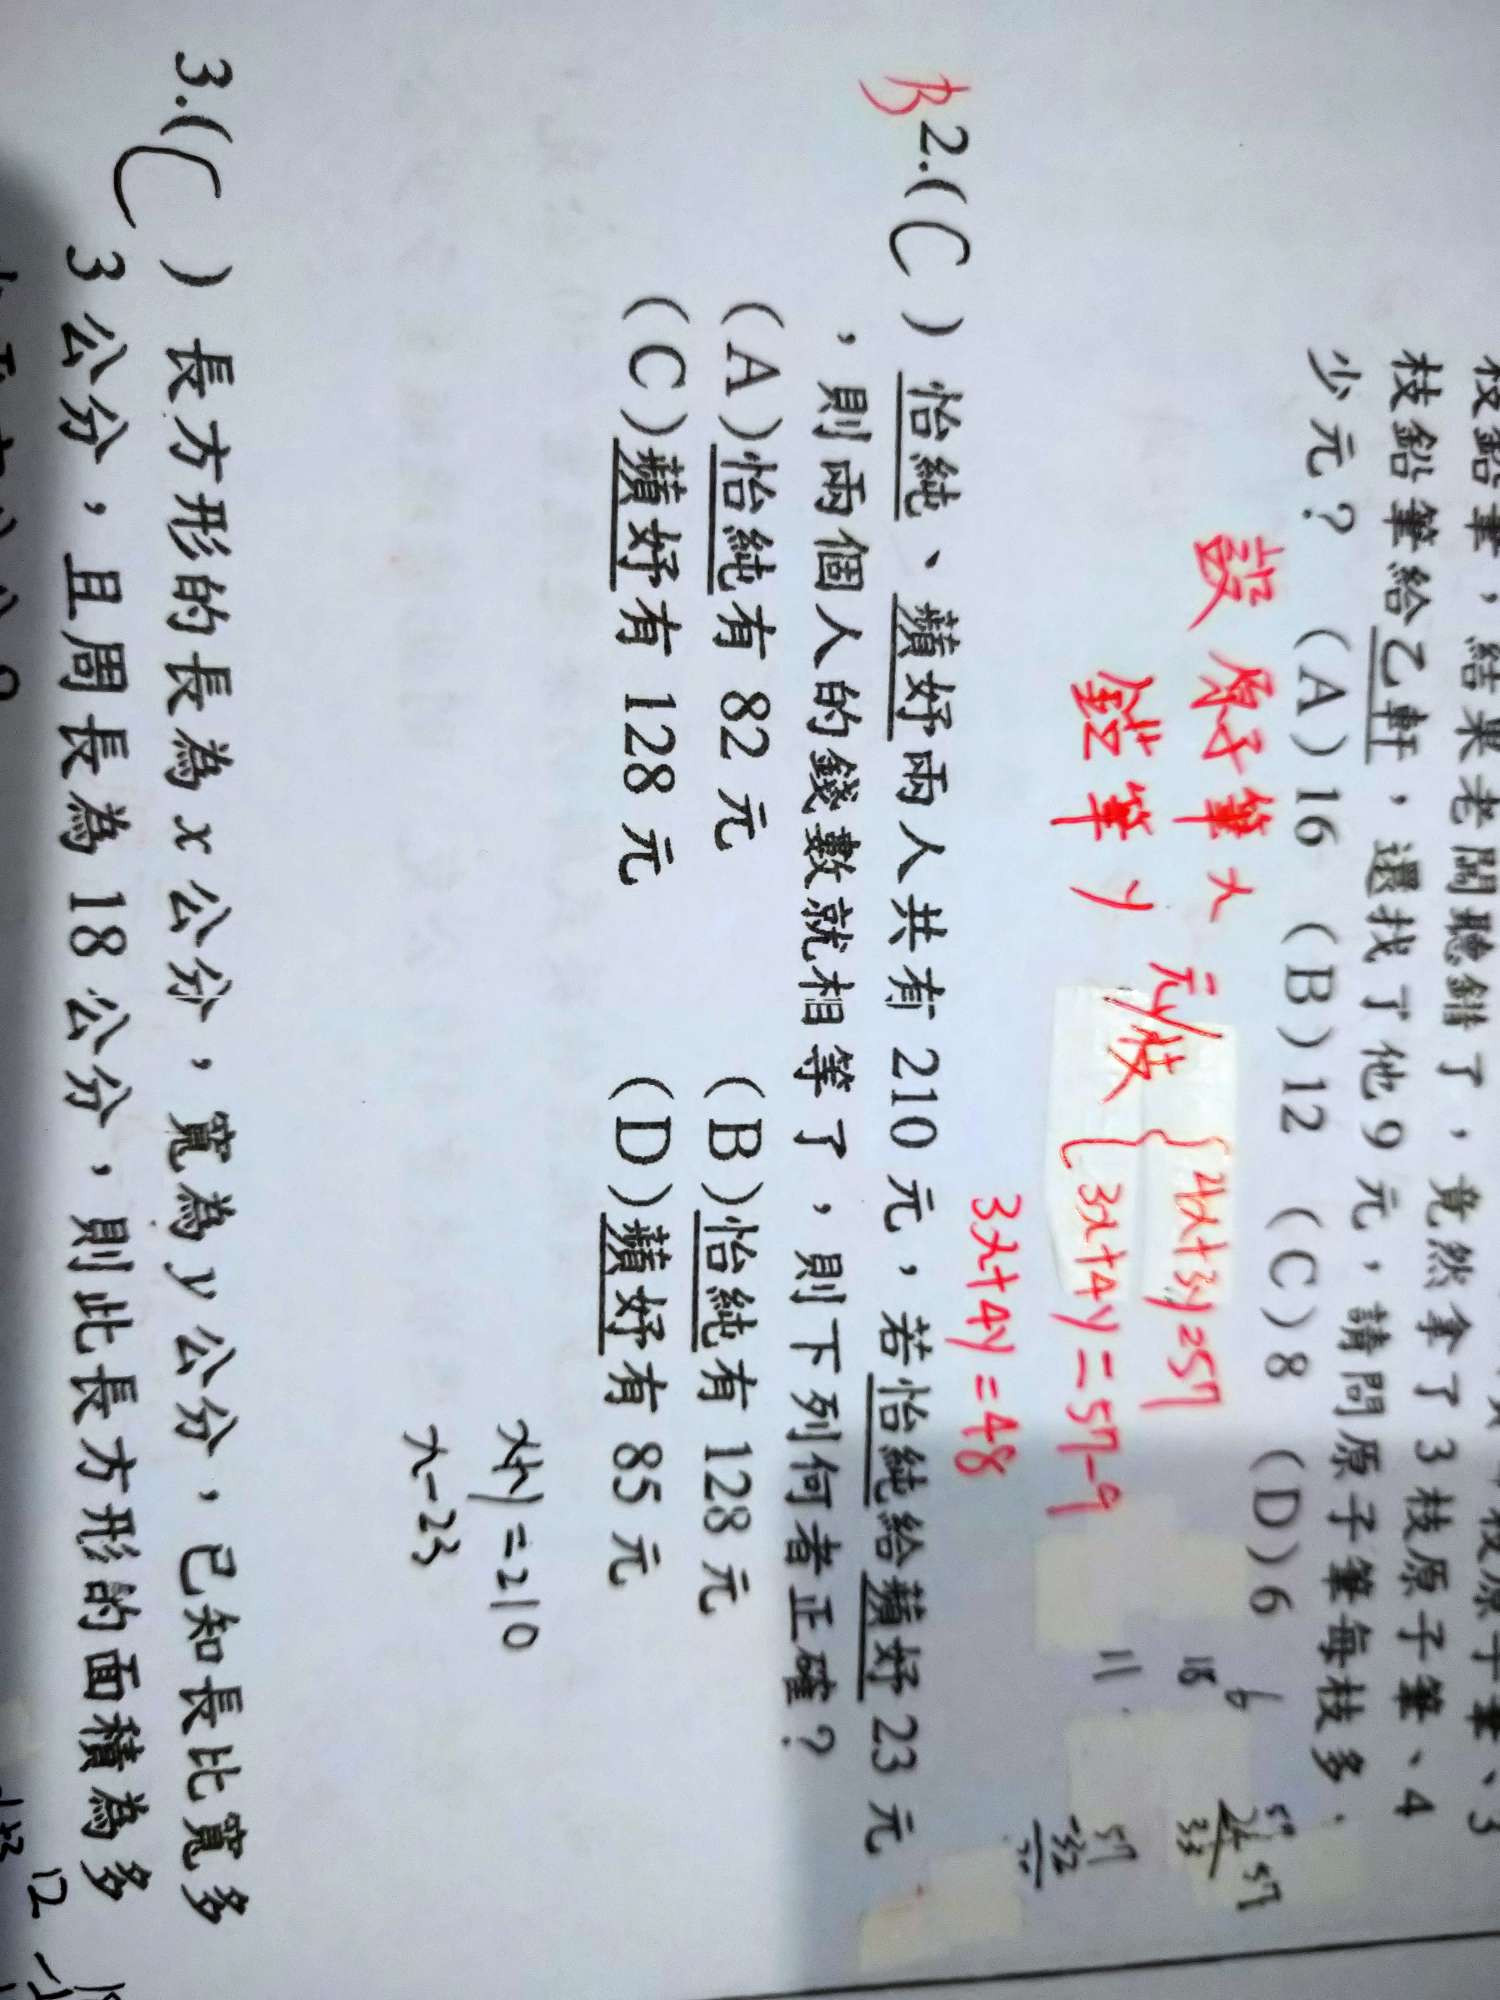 枝鉛筆，結果老闆聽錯了，竟然拿了3枝原子筆、4
枝鉛筆給乙軒，還找了他9元，請問原子筆每枝多
少元？ (A)16 (B)12 (C)8 (D)6
設原子筆x
鉛筆y
元/枝
4x+3y=57
3x+4y=57-9
3x+4y=48
6
18
11
57
57
-32
B 2.(C) 怡純、蘋妤兩人共有210元，若怡純給蘋妤23元
，則兩個人的錢數就相等了，則下列何者正確？
(A)怡純有82元 (B)怡純有128元
(C)蘋妤有128元 (D)蘋妤有85元
x+y=210
x-23
3.(C) 長方形的長為x公分，寬為y公分，已知長比寬多
3公分，且周長為18公分，則此長方形的面積為多
12